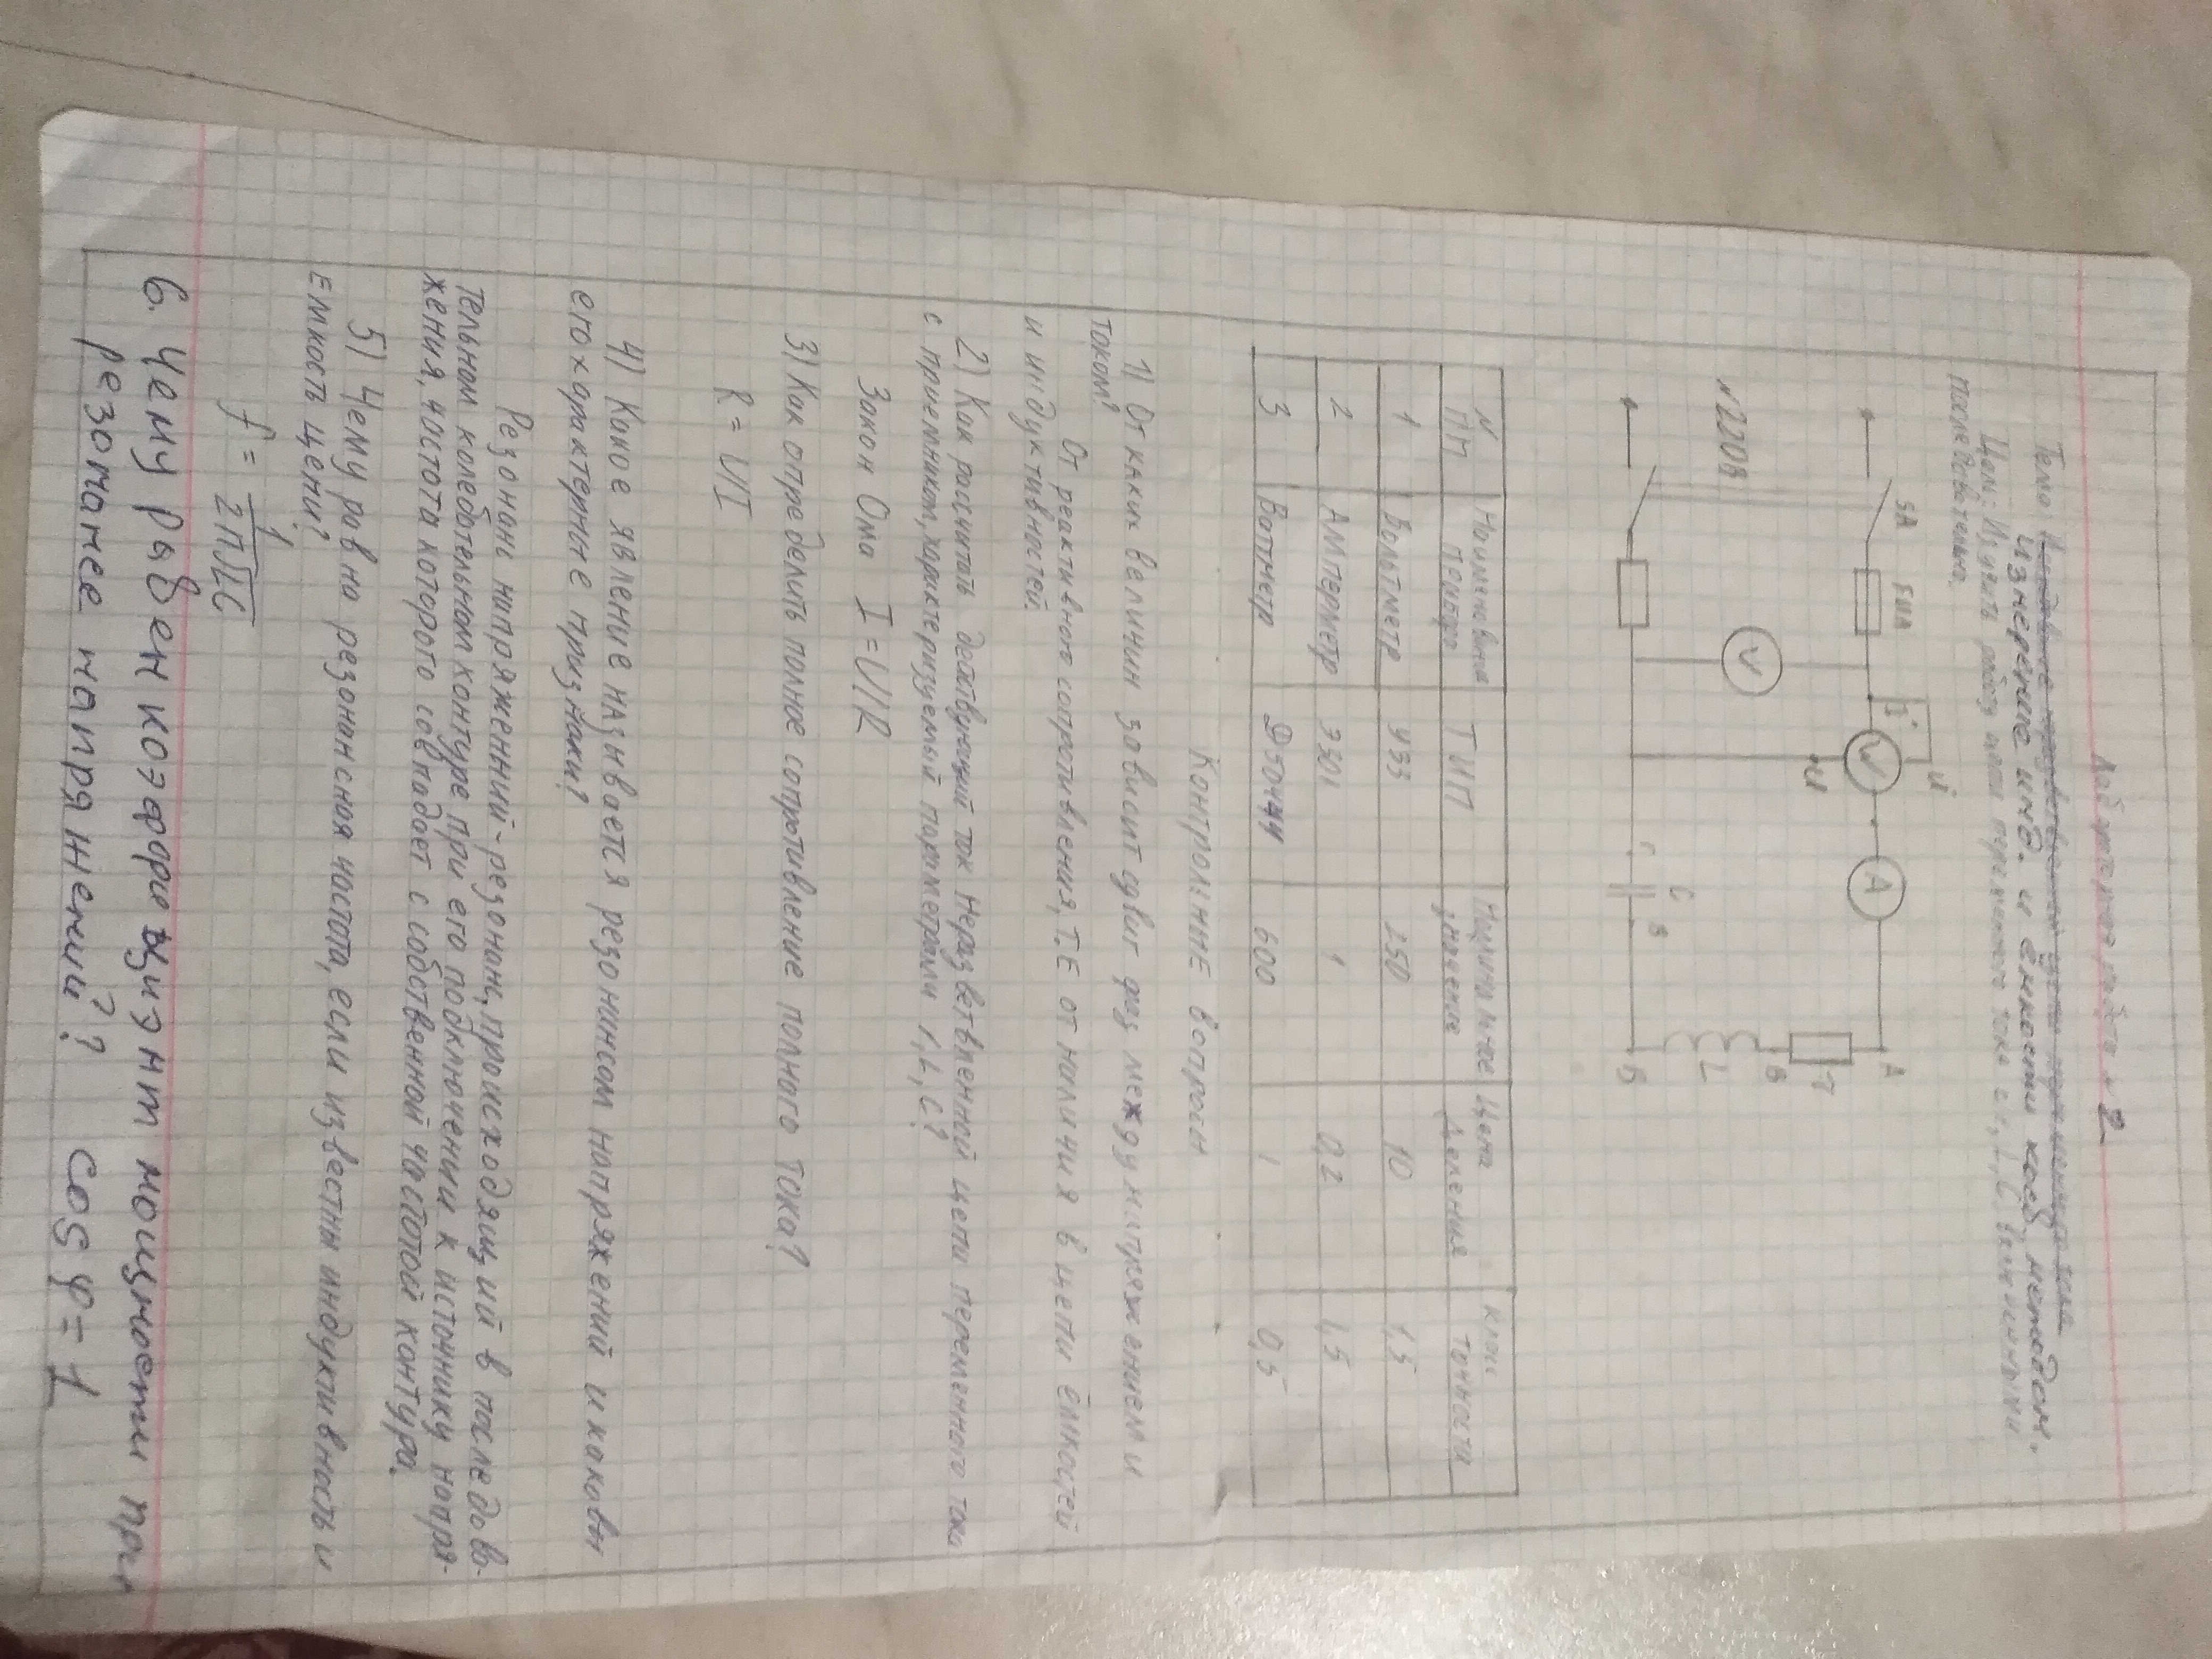 Лабораторная работа №2
Тема
Измерение инд. и ёмкости косв. методом.
Цель: Изучить работу цепи переменного тока с r, L, C, включенными
последовательно.
SA FUA
I* U*
W A A
r
V B
~220В U L
r C B Б
N
ПП Наименование
прибора ТИП Номинальное
значение Цена
Деления Класс
Точности
1 Вольтметр Э33 250 10 1,5
2 Амперметр Э301 1 0,2 1,5
3 Ваттметр Д50444 600 1 0,5
Контрольные вопросы
1) От каких величин зависит сдвиг фаз между напряжением и
током?
От реактивного сопротивления, т.е от наличия в цепи ёмкостей
и индуктивностей.
2) Как расчитать действующий ток неразветвленной цепи переменного тока
с приемником, характеризуемый параметрами r, L, C?
Закон Ома I = U/R
3) Как определить полное сопротивление полного тока?
R = U/I
4) Какое явление называется резонансом напряжений и каковы
его характерные признаки?
Резонанс напряжений - резонанс, происходящий в последова-
тельном колебательном контуре при его подключении к источнику напря-
жения, частота которого совпадает с собственной частотой контура.
5) Чему равна резонансная частота, если известны индуктивность и
емкость цепи?
f = 1/2π√LC
6. Чему равен коэффициэнт мощности при
резонансе напряжений? cos φ = 1